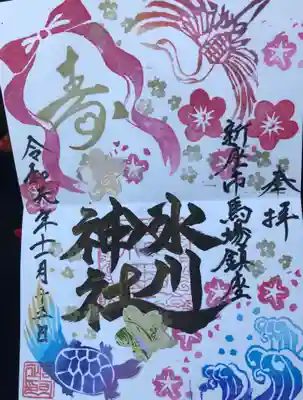 奉拝
新座市馬場鎮座
氷川
神社
寿
令和元年十一月十五日